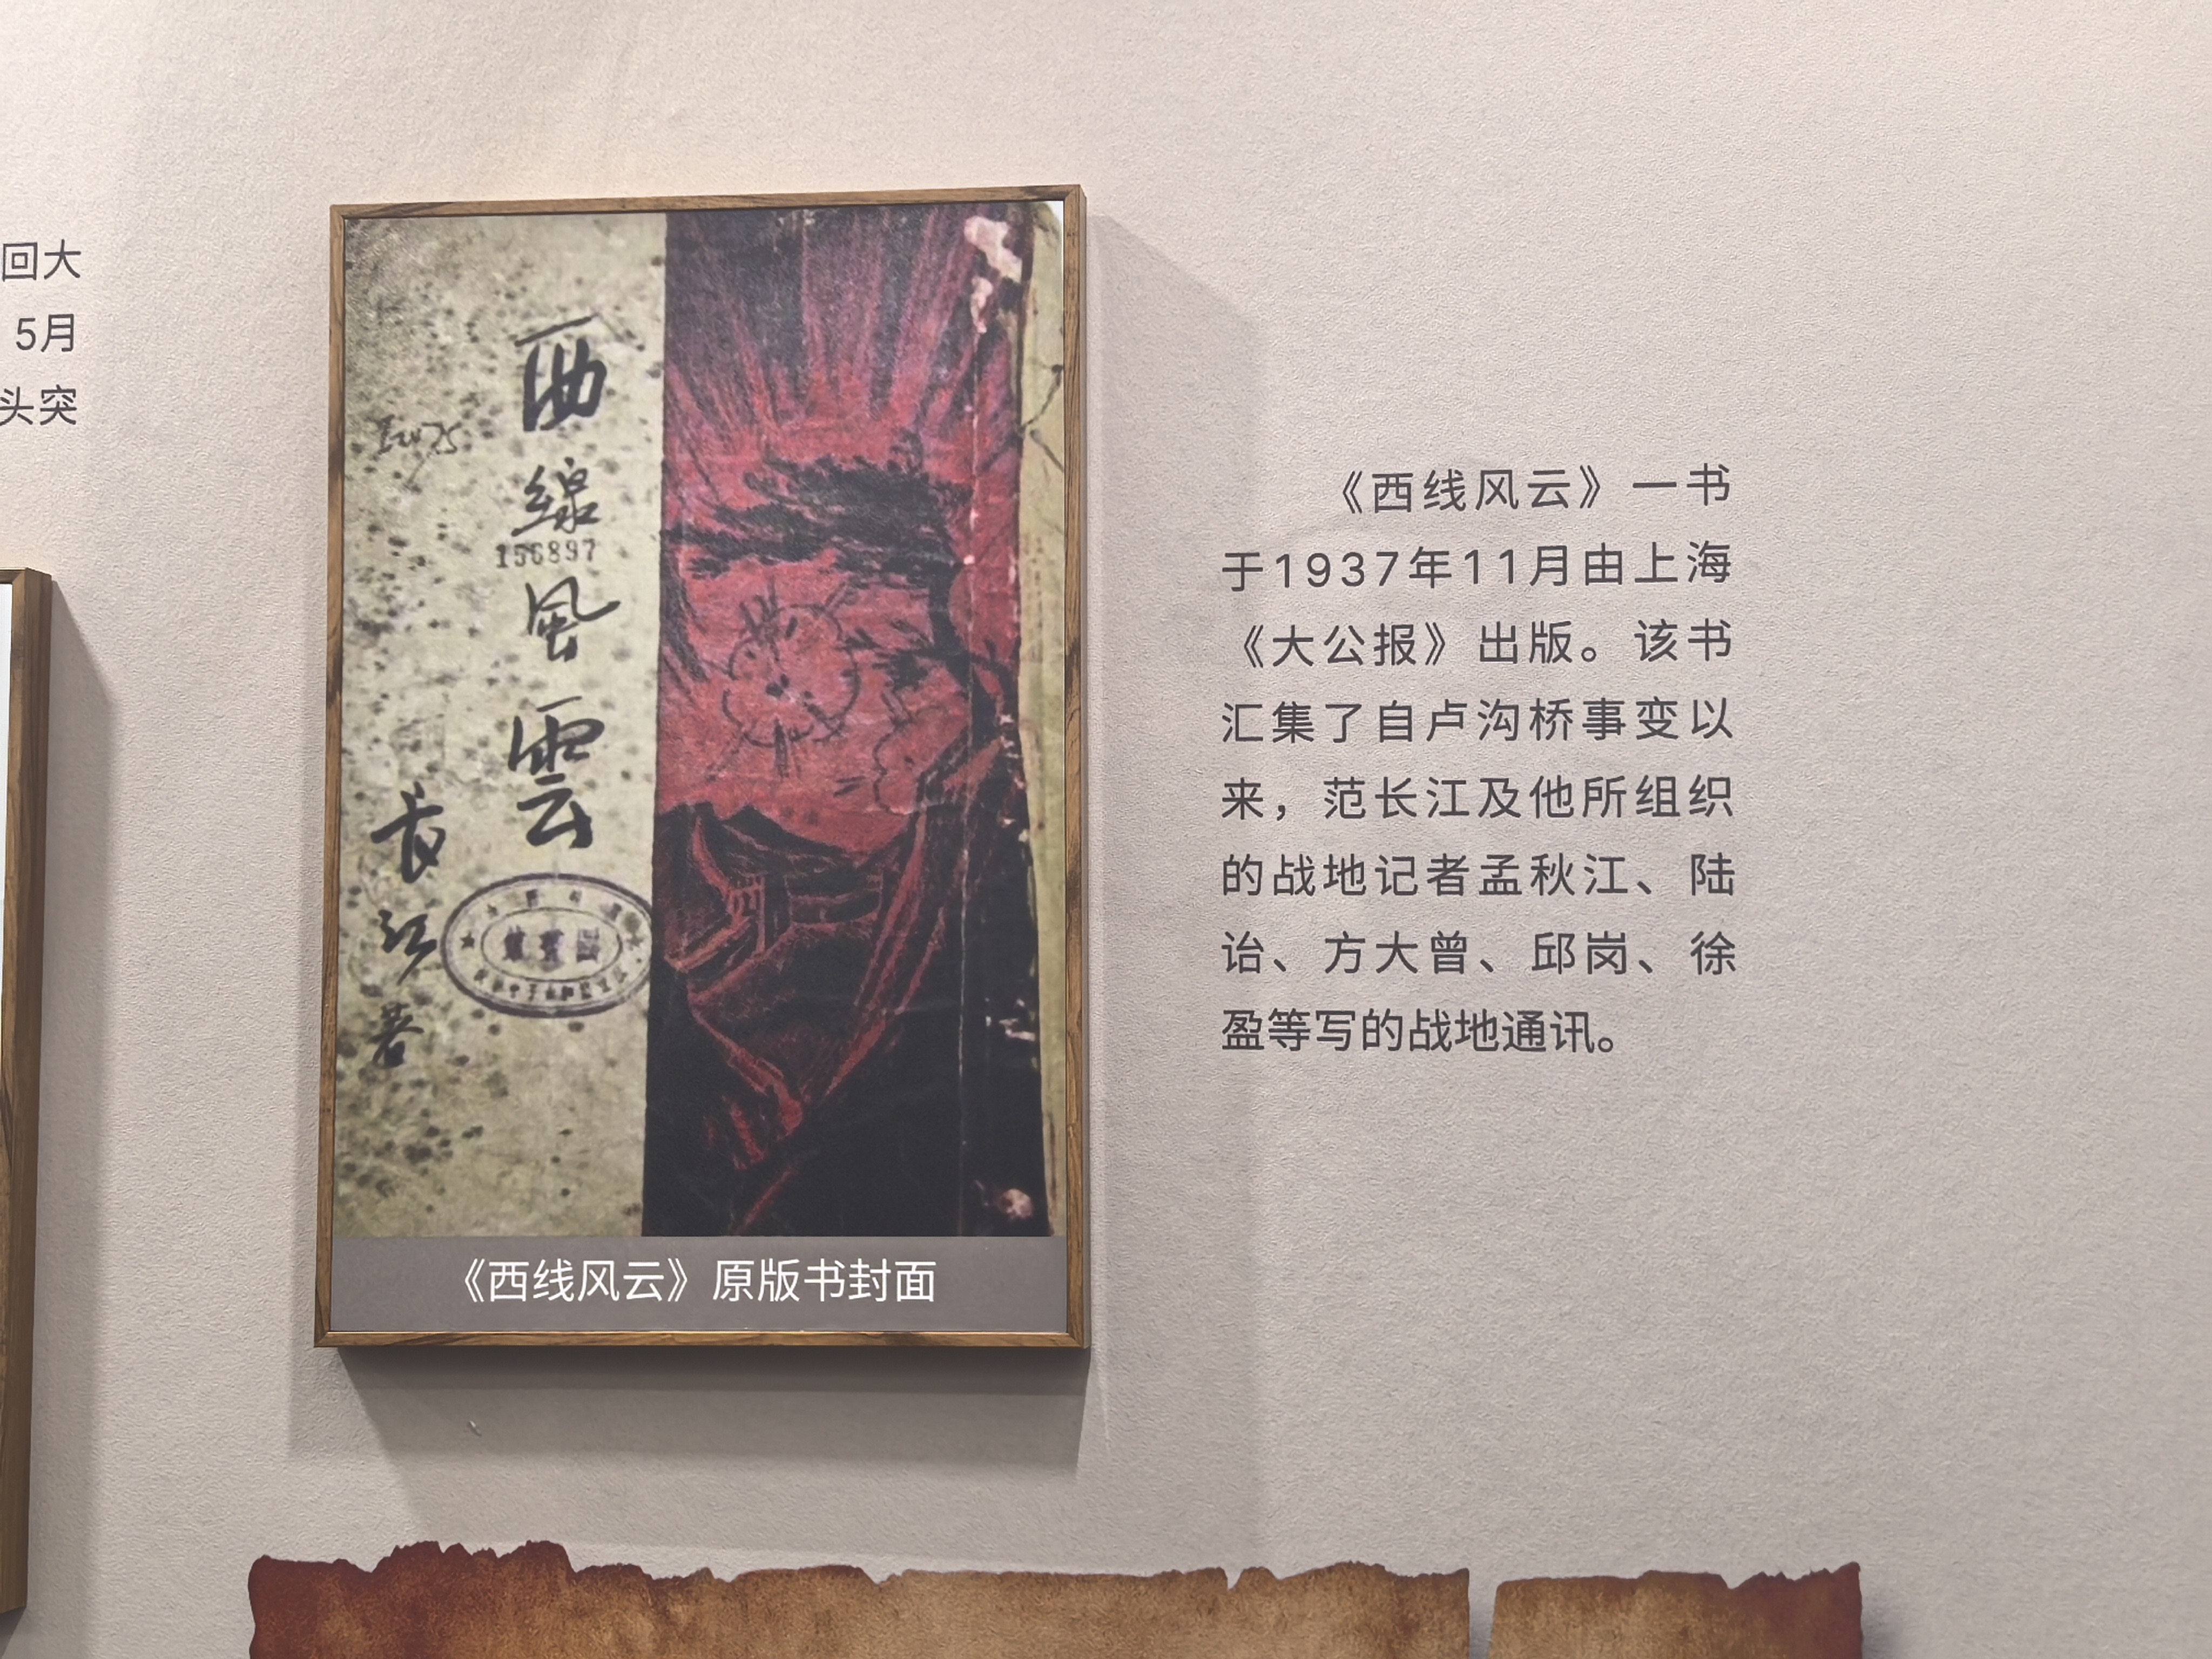 回大
5月
头突
西線風雲
156897
長江著
《西线风云》原版书封面
《西线风云》一书
于1937年11月由上海
《大公报》出版。该书
汇集了自卢沟桥事变以
来，范长江及他所组织
的战地记者孟秋江、陆
诒、方大曾、邱岗、徐
盈等写的战地通讯。